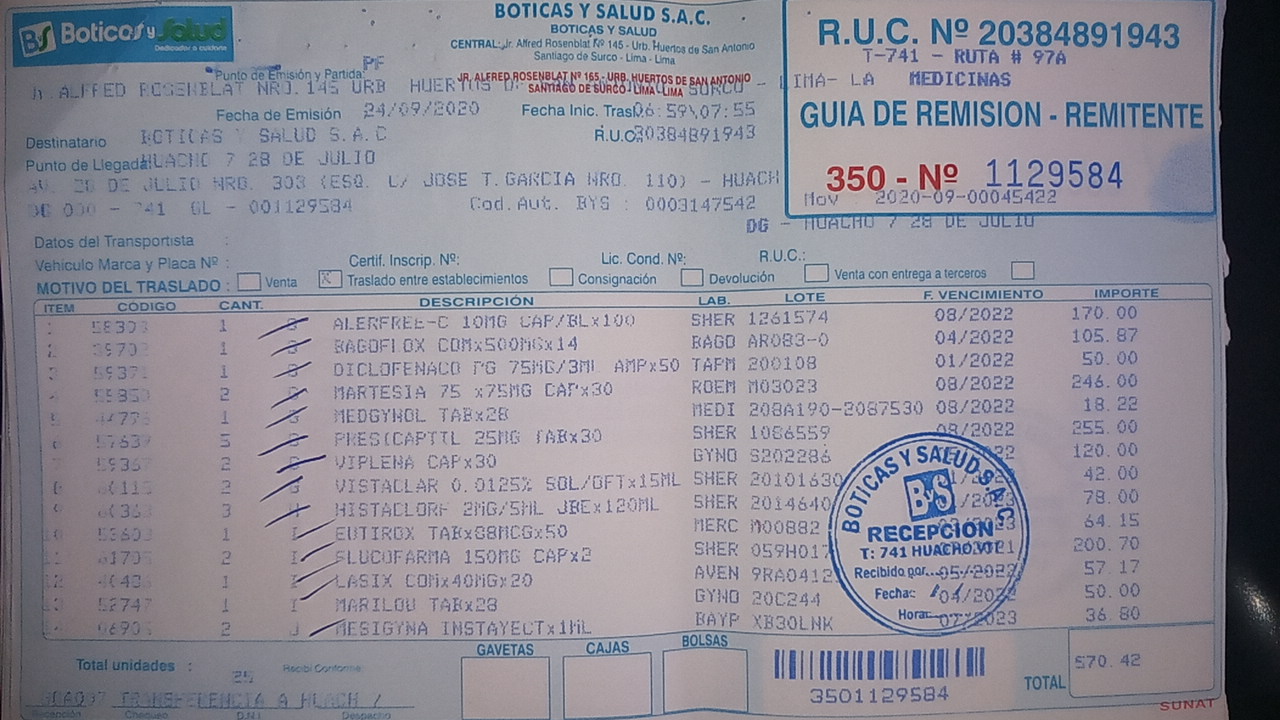 BS Boticas y Salud
Dedicados a cuidarte
BOTICAS Y SALUD S.A.C.
BOTICAS Y SALUD
CENTRAL: Jr. Alfred Rosenblat Nº 145 - Urb. Huertos de San Antonio
Santiago de Surco - Lima - Lima
JR. ALFRED ROSENBLAT Nº 165 - URB. HUERTOS DE SAN ANTONIO
SANTIAGO DE SURCO - LIMA - LIMA
R.U.C. Nº 20384891943
T-741 - RUTA # 97A
MEDICINAS
GUIA DE REMISION - REMITENTE
350 - Nº 1129584
Mov 2020-09-00045422
PF
Punto de Emisión y Partida:
Jr. ALFRED ROSENBLAT NRO. 145 URB HUERTOS SURCO - LIMA- LA
Fecha de Emisión 24/09/2020 Fecha Inic. Tras 06:59\07:55
Destinatario BOTICAS Y SALUD S.A.C R.U.C 20384891943
Punto de Llegada: HUACHO 7 28 DE JULIO
AV. 28 DE JULIO NRO. 303 (ESQ. L/ JOSE T.GARCIA NRO. 110) - HUACH
DG 000 - 741 GL - 001129584 Cod.Aut. BYS : 0003147542
DG - HUACHO 7 28 DE JULIO
Datos del Transportista :
Vehículo Marca y Placa Nº : Certif. Inscrip. Nº: Lic. Cond. Nº: R.U.C.:
MOTIVO DEL TRASLADO : Venta X Traslado entre establecimientos Consignación Devolución Venta con entrega a terceros
ITEM CÓDIGO CANT. DESCRIPCIÓN LAB. LOTE F. VENCIMIENTO IMPORTE
1 1 ALERFREE-C 10MG CAP/BLx100 SHER 1261574 08/2022 170.00
2 1 BAGOFLOX COMx500MGx14 BAGO AR083-0 04/2022 105.87
3 59371 1 DICLOFENACO PG 75MG/3ML AMPx50 TAPM 200108 01/2022 50.00
2 MARTESIA 75 x75MG CAPx30 ROEM M03023 08/2022 246.00
1 MEDGYNOL TABx28 MEDI 208A190-2087530 08/2022 18.22
57639 5 PRES(CAPTTL 25MG TABx30 SHER 1086559 08/2022 255.00
59367 2 VIPLENA CAPx30 GYNO S202286 120.00
2 VISTACLAR 0.0125% SOL/OFTx15ML SHER 20101630 42.00
3 HISTACLORF 2MG/5ML JBEx120ML SHER 2014640 78.00
10 53603 1 EUTIROX TABx88MCGx50 MERC M00882 64.15
61705 2 GLUCOFARMA 150MG CAPx2 SHER 059H017 200.70
12 1 LASIX COMx40MGx20 AVEN 9RA0412 05/2022 57.17
52747 1 MARILOU TABx28 GYNO 20C244 04/2022 50.00
2 MESIGYNA INSTAYECTx1ML BAYP XB30LNK 07/2023 36.80
BOTICAS Y SALUD S.A.C.
ByS
RECEPCIÓN
T: 741 HUACHO VII
Recibido por
Fecha:
Hora:
Total unidades : 25 Recibi Conforme
GAVETAS CAJAS BOLSAS
3501129584
TOTAL 570.42
TRANSFERENCIA A HUACH /
Recepción Chequeo D.N.I Despacho
SUNAT